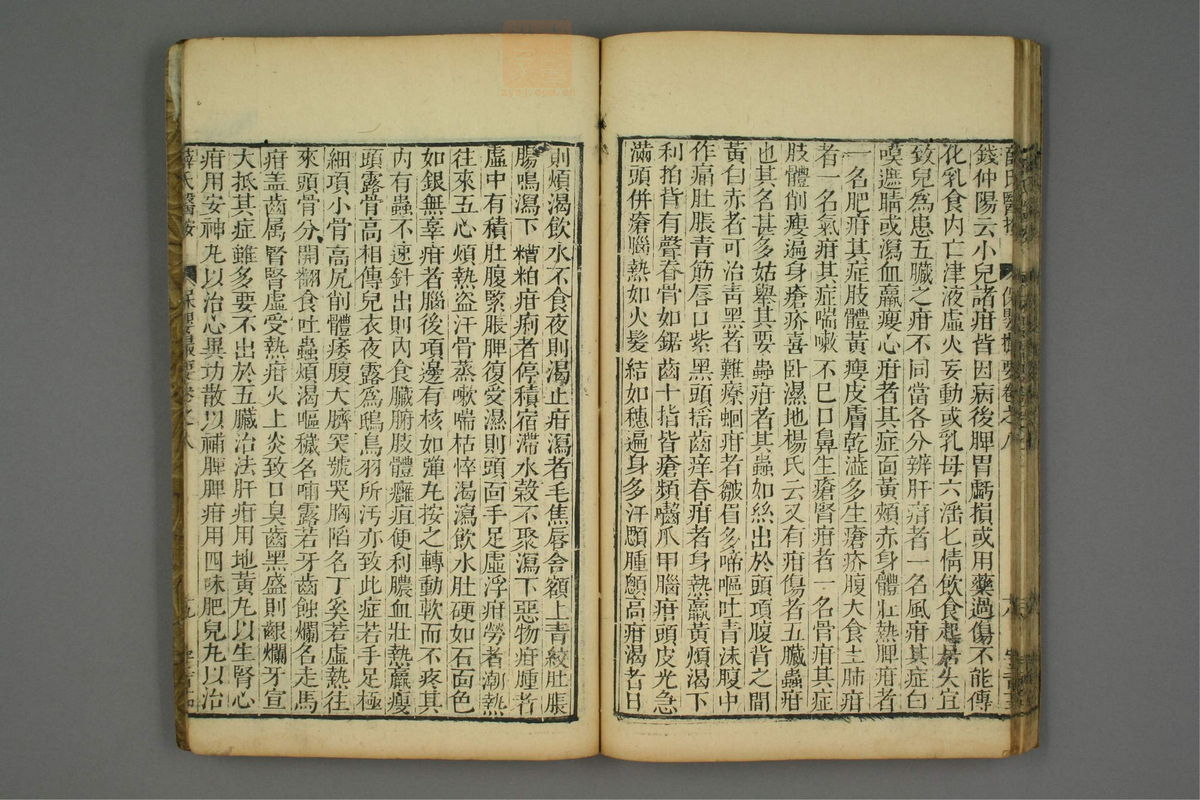 薛氏醫按 保嬰撮要卷之八
錢仲陽云小兒諸疳皆因病後脾胃虧損或用藥過傷不能傳
化乳食内亡津液虛火妄動或乳母六淫七情飲食起居失宜
致兒為患五臟之疳不同當各分辨肝疳者一名風疳其症白
膜遮睛或瀉血羸瘦心疳者其症面黃頰赤身體壯熱脾疳者
一名肥疳其症肢體黃瘦皮膚乾澁多生瘡疥腹大食土肺疳
者一名氣疳其症喘嗽不已口鼻生瘡腎疳者一名骨疳其症
肢體削瘦遍身瘡疥喜卧濕地楊氏云又有疳傷者五臟蟲疳
也其名甚多姑舉其要蟲疳者其蟲如絲出於頭項腹背之間
黃白赤者可治青黑者難療蛔疳者皺眉多啼嘔吐青沫腹中
作痛肚脹青筋唇口紫黑頭揺齒痒脊疳者身熱羸黃煩渴下
利拍背有聲脊骨如鋸齒十指皆瘡頻嚙爪甲腦疳頭皮光急
滿頭併瘡腦熱如火髮結如穗遍身多汗顋腫顖高疳渴者日
則煩渴飲水不食夜則渴止疳瀉者毛焦唇舍額上青紋肚脹
腸鳴瀉下糟粕疳痢者停積宿滯水穀不聚瀉下惡物疳腫者
虛中有積肚腹緊脹脾復受濕則頭面手足虛浮疳勞者潮熱
往來五心煩熱盗汗骨蒸嗽喘枯悴渴瀉飲水肚硬如石面色
如銀無辜疳者腦後項邊有核如彈丸按之轉動軟而不疼其
内有蟲不速針出則内食臟腑肢體癰疽便利膿血壯熱羸瘦
頭露骨高相傳兒衣夜露為鴟鳥羽所汚亦致此症若手足極
細項小骨高尻削體痿腹大臍突號哭胸陷名丁奚若虛熱往
來頭骨分開翻食吐蟲煩渴嘔穢名哺露若牙齒蝕爛名走馬
疳盖齒属腎腎虛受熱疳火上炎致口臭齒黑盛則齦爛牙宣
大抵其症雖多要不出於五臟治法肝疳用地黃丸以生腎心
疳用安神丸以治心異功散以補脾脾疳用四味肥兒丸以治
薛氏醫按 保嬰撮要卷之八 九